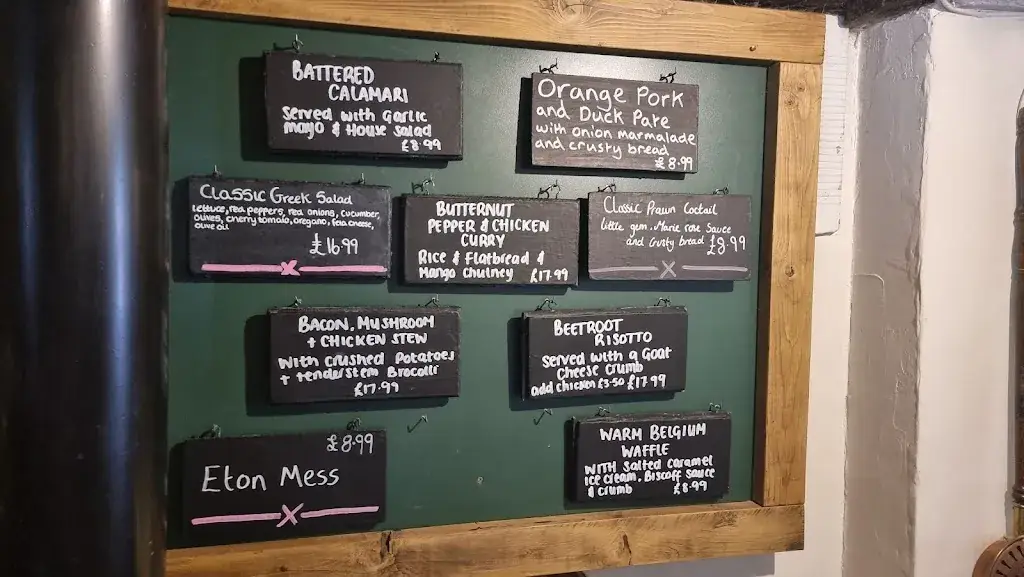 BATTERED
CALAMARI
Served with Garlic
mayo & House Salad
£8.99
Orange Pork
and Duck Pate
with onion marmalade
and crusty bread
£8.99
Classic Greek Salad
lettuce, red peppers, red onions, cucumber,
olives, cherry tomato, oregano, feta cheese,
olive oil
£16.99
BUTTERNUT
PEPPER & CHICKEN
CURRY
Rice & Flatbread &
Mango Chutney £17.99
Classic Prawn Coctail
little gem, Marie rose Sauce
and Crusty bread £8.99
BACON, MUSHROOM
+ CHICKEN STEW
With crushed Potatoes
+ tenderstem Brocolli
£17.99
BEETROOT
RISOTTO
Served with a Goat
Cheese Crumb
add chicken £3.50 £17.99
£8.99
Eton Mess
WARM BELGIUM
WAFFLE
WITH Salted Caramel
ice cream, Biscoff Sauce
& Crumb £8.99